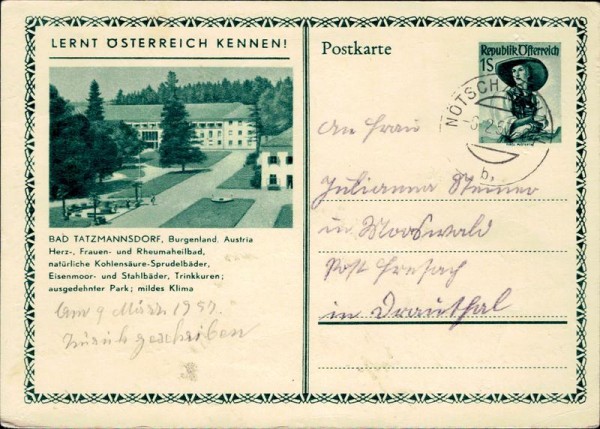 LERNT ÖSTERREICH KENNEN!
BAD TATZMANNSDORF, Burgenland, Austria
Herz-, Frauen- und Rheumaheilbad,
natürliche Kohlensäure-Sprudelbäder,
Eisenmoor- und Stahlbäder, Trinkkuren;
ausgedehnter Park; mildes Klima
Am 9 März 1951.
zurückgeschrieben
Postkarte
Republik Österreich
1S
NÖTSCH
b
An Frau
Julianna Steiner
in Mooswald
Post Fresach
in Drautal